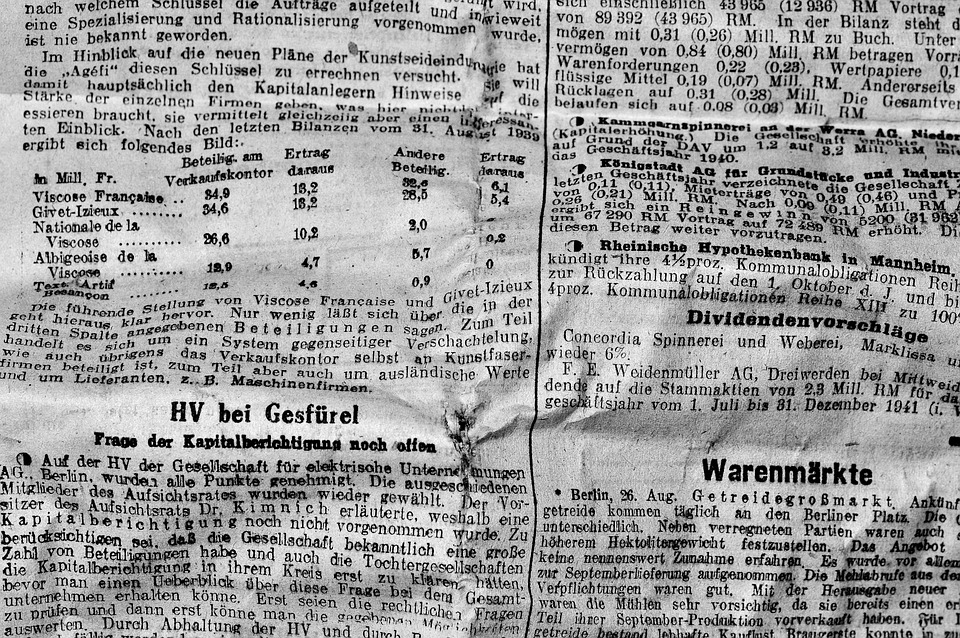 nach welchem Schlüssel die Aufträge aufgeteilt und inwieweit
eine Spezialisierung und Rationalisierung vorgenommen wurde,
ist nie bekannt geworden.
Im Hinblick auf die neuen Pläne der Kunstseideindustrie hat
die „Agéfi“ diesen Schlüssel zu errechnen versucht. Sie will
damit hauptsächlich den Kapitalanlegern Hinweise auf die
Stärke der einzelnen Firmen geben, was hier nicht
essieren braucht, sie vermittelt gleichzeitig aber einen interessan-
ten Einblick. Nach den letzten Bilanzen vom 31. August 1939
ergibt sich folgendes Bild:
Beteilig. am Ertrag Andere Ertrag
In Mill. Fr. Verkaufskontor daraus Beteilig. daraus
Viscose Française .. 34,9 13,2 32,6 6,1
Givet-Izieux ........ 34,6 13,2 28,5 5,4
Nationale de la
Viscose .......... 26,6 10,2 2,0 0,2
Albigeoise de la
Viscose .......... 12,9 4,7 5,7 0
Text. Artif
Besançon .......... 12,5 4,6 0,9
Die führende Stellung von Viscose Française und Givet-Izieux
geht hieraus klar hervor. Nur wenig läßt sich über die in der
dritten Spalte angegebenen Beteiligungen sagen. Zum Teil
handelt es sich um ein System gegenseitiger Verschachtelung,
wie auch übrigens das Verkaufskontor selbst an Kunstfaser-
firmen beteiligt ist, zum Teil aber auch um ausländische Werte
und um Lieferanten, z. B. Maschinenfirmen.
HV bei Gesfürel
Frage der Kapitalberichtigung noch offen
Auf der HV der Gesellschaft für elektrische Unternehmungen
AG., Berlin, wurden alle Punkte genehmigt. Die ausgeschiedenen
Mitglieder des Aufsichtsrates wurden wieder gewählt. Der Vor-
sitzer des Aufsichtsrats Dr. Kimnich erläuterte, weshalb eine
Kapitalberichtigung noch nicht vorgenommen wurde. Zu
berücksichtigen sei, daß die Gesellschaft bekanntlich eine große
Zahl von Beteiligungen habe und auch die Tochtergesellschaften
die Kapitalberichtigung in ihrem Kreis erst zu klären hätten,
bevor man einen Ueberblick über diese Frage bei dem Gesamt-
unternehmen erhalten könne. Erst seien die rechtlichen Fragen
zu prüfen und dann erst könne man die gegebenen Möglichkeiten
auswerten. Durch Abhaltung der HV und durch
sich einschließlich 43 965 (12 936) RM Vortrag
von 89 392 (43 965) RM. In der Bilanz steht d
mögen mit 0,31 (0,26) Mill. RM zu Buch. Unter
vermögen von 0,84 (0,80) Mill. RM betragen Vorrä
Warenforderungen 0,22 (0,28), Wertpapiere 0,1
flüssige Mittel 0,19 (0,07) Mill. RM. Andererseits
Rücklagen auf 0,31 (0,28) Mill. Die Gesamtver
belaufen sich auf 0,08 (0,03) Mill. RM.
Kammgarnspinnerei an der Werra AG, Nieder
(Kapitalerhöhung.) Die Gesellschaft erhöhte ihr
auf Grund der DAV um 1,2 auf 3,2 Mill. RM mi
das Geschäftsjahr 1940.
Königstadt AG für Grundstücke und Industr
letzten Geschäftsjahr verzeichnete die Gesellschaft
von 0,11 (0,11), Mieterträge von 0,49 (0,46) und
0,26 (0,21) Mill. RM. Nach 0,09 (0,11) Mill. RM
ergibt sich ein Reingewinn von 5200 (31 962)
um 67 290 RM Vortrag auf 72 489 RM erhöht. Di
diesen Betrag weiter vorzutragen.
Rheinische Hypothekenbank in Mannheim.
kündigt ihre 4½proz. Kommunalobligationen Reih
zur Rückzahlung auf den 1. Oktober d. J. und bi
4proz. Kommunalobligationen Reihe XIII zu 100%
Dividendenvorschläge
Concordia Spinnerei und Weberei, Marklissa u
wieder 6%.
F. E. Weidenmüller AG, Dreiwerden bei Mittweid
dende auf die Stammaktien von 2,3 Mill. RM für da
geschäftsjahr vom 1. Juli bis 31. Dezember 1941 (i. V
Warenmärkte
* Berlin, 26. Aug. Getreidegroßmarkt. Ankünf
getreide kommen täglich an den Berliner Platz. Die
unterschiedlich. Neben verregneten Partien waren auch
höherem Hektolitergewicht festzustellen. Das Angebot
keine nennenswert Zunahme erfahren. Es wurde vor allem
zur Septemberlieferung aufgenommen. Die Mehlabrufe aus de
Verpflichtungen waren gut. Mit der Herausgabe neuer
waren die Mühlen sehr vorsichtig, da sie bereits einen er
Teil ihrer September-Produktion vorverkauft haben. Für
getreide bestand lebhafte Kauflust. Brauvertigungen